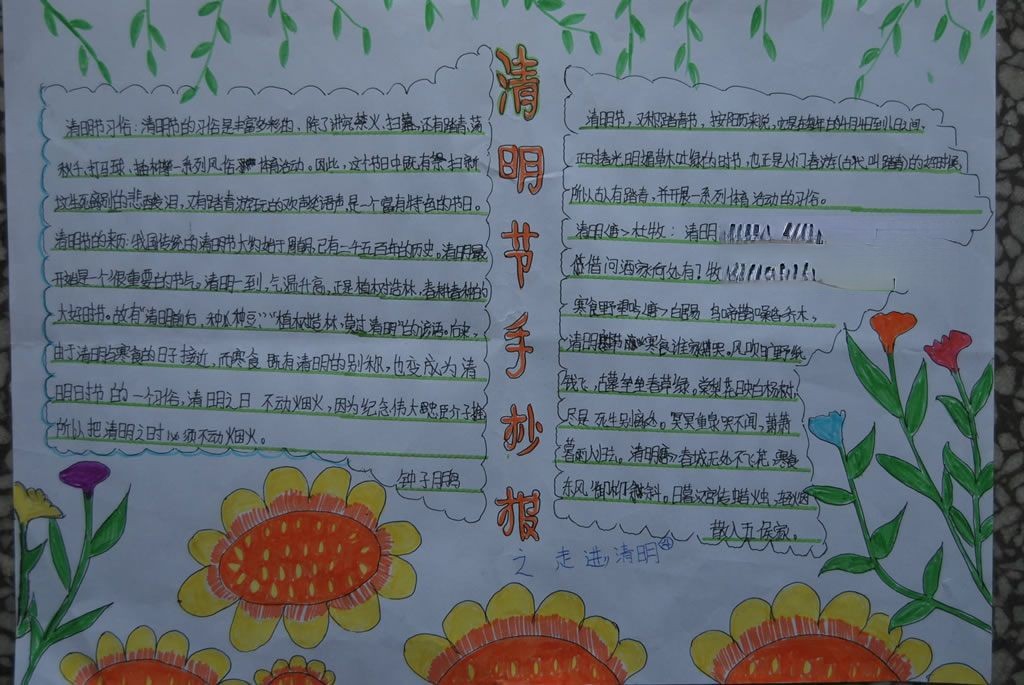 清明节手抄报
之走进清明
清明节习俗：清明节的习俗是丰富多彩的，除了讲究禁火、扫墓，还有踏青、荡
秋千、打马球、插柳等一系列风俗体育活动。因此，这个节日中既有祭扫新
坟生死离别的悲酸泪，又有踏青游玩的欢声笑语声，是一个富有特色的节日。
清明节的来历：我国传统的清明节大约始于周朝，已有二千五百年的历史。清明最
开始是一个很重要的节气，清明一到，气温升高，正是植树造林，春耕春种的
大好时节。故有“清明前后，种瓜种豆”、“植树造林，莫过清明”的谚语。后来，
由于清明与寒食的日子接近，而寒食 既有清明的别称，也变成为清
明时节的一个习俗，清明之日 不动烟火，因为纪念伟大忠臣介子推
所以把清明之时 必须不动烟火。
钟子月鹃
清明节，又称踏青节，按阳历来说，它是在每年的4月4日至6日之间，
正是春光明媚草木吐绿的时节，也正是人们春游（古代叫踏青）的好时候，
所以古有踏青，并开展一系列体育活动的习俗。
清明 唐>杜牧：清明
借问酒家何处有？牧
寒食野望吟 唐>白居易 乌啼鹊噪昏乔木，
清明寒食谁家哭。风吹旷野纸
钱飞，古墓垒垒春草绿。棠梨花映白杨树，
尽是死生别离处。冥冥重泉哭不闻，萧萧
暮雨人归去。清明 唐>春城无处不飞花，寒食
东风御柳斜。日暮汉宫传蜡烛，轻烟
散入五侯家。